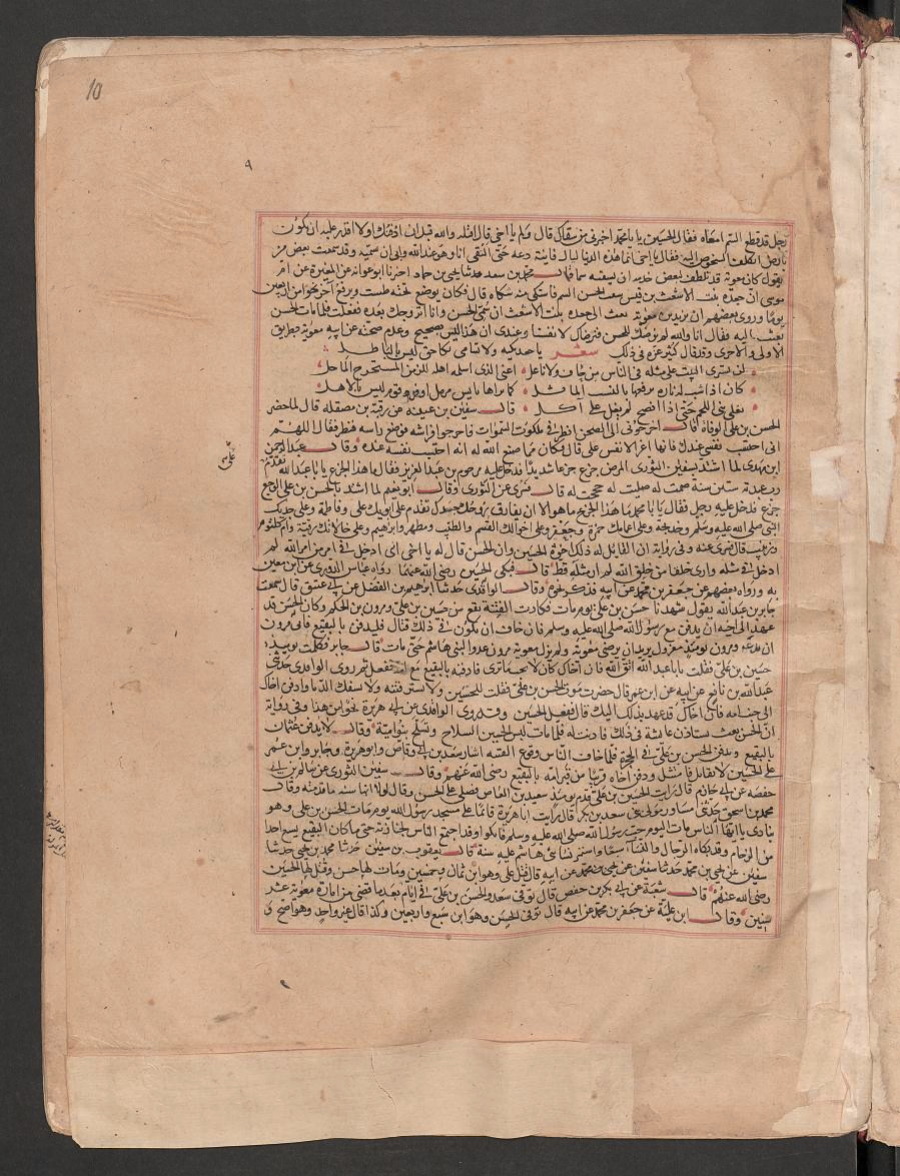 10
٩
رجل قد قطع السم امعاه فقال الحسين يا با محمد اخبرني من سقاك قال ولم يا اخي قال اقتله والله قبل ان ادفنك اولا اقدر عليه او يكون
بارض اتكلف الشخوص اليه فقال يا اخي انما هذه الدنيا ليال فانية دعه حتى التقي انا وهو عند الله وابى ان يسميه وقد سمعت بعض من
يقول كان معوية قد تلطف لبعض خدمه ان يسقيه سما قال محمد بن سعد حدثنا يحيى بن حماد اخبرنا ابو عوانه عن المغيرة عن ام
موسى ان جعدة بنت الاشعث بن قيس سقت الحسن السم فاشتكى منه شكاه قال فكان يوضع تحته طست ويرفع آخر نحوا من اربعين
يوما وروى بعضهم ان يزيد بن معوية بعث الى جعده بنت الاشعث ان سمي الحسن وانا اتزوجك بعده ففعلت فلما مات الحسن
بعثت اليه فقال انا والله لم نرضك للحسن فنرضاك لانفسنا وعندي ان هذا ليس بصحيح وعدم صحته عن ابيه معوية بطريق
الاولى والاحرى وقد قال كثير عزه في ذلك شعر يا جعد بكيه ولا تسامي بكا حق ليس بالباطل
لن تستري البيت على مثله في الناس من حاف ولا ناعل اعني الذي اسلمه اهله للزمن المستخرج الماحل
كان اذا شبت له ناره يرفعها بالنسب الماثل كما يراها بايس مرمل او فرد قوم ليس بالاهل
يغلي بني اللحم حتى اذا انضج لم يغل على آكل قال سفين بن عيينه عن رقبة بن مصقله قال لما حضر
الحسن بن علي الوفاة قال اخرجوني الى الصحن انظر في ملكوت السموات فاخرجوا فراشه فرفع راسه فنظر فقال اللهم
اني احتسب نفسي عندك فانها اعز الانفس علي قال فكان مما صنع الله له انه احتسب نفسه عنده وقال عبد الرحمن
ابن مهدي لما اشتد بسفين الثوري المرض جزع جزعا شديدا فدخل عليه مرحوم بن عبد العزيز فقال ما هذا الجزع يا با عبد الله تقدم على
رب عبدته ستين سنة صمت له صليت له حججت له قال فسري عن الثوري وقال ابو نعيم لما اشتد بالحسن بن علي الوجع
جزع فدخل عليه رجل فقال يا با محمد ما هذا الجزع ما هو الا ان تفارق روحك جسدك تقدم على ابويك علي وفاطمة وعلى جديك
النبي صلى الله عليه وسلم وخديجة وعلى اعمامك حمزة وجعفر وعلى اخوالك القسم والطيب ومطهر وابرهيم وعلى خالاتك رقية وام كلثوم
وزينب قال فسري عنه وفي رواية ان القايل له ذلك اخوه الحسين وان الحسن قال له يا اخي اني ادخل في امر من امر الله لم
ادخل في مثله وارى خلقا من خلق الله لم ار مثله قط قال فبكى الحسين رضي الله عنهما رواه عباس الدوري عن ابن معين
به ورواه بعضهم عن جعفر بن محمد عن ابيه فذكر نحوه وقال الواقدي حدثنا ابرهيم بن الفضل عن ابي عتيق قال سمعت
جابر بن عبد الله يقول شهدنا حسن بن علي يوم مات فكادت الفتنة تقع بين حسين بن علي ومرون بن الحكم وكان الحسن قد
عهد الى اخيه ان يدفن مع رسول الله صلى الله عليه وسلم فان خاف ان يكون في ذلك قتال فليدفن بالبقيع فابى مرون
ان يدعه ومرون يومئذ معزول يريد ان يرضي معوية ولم يزل معوية مرون عدوا لبني هاشم حتى مات قال جابر فكلمت يوميذ
حسين بن علي فقلت يا با عبد الله اتق الله فان اخاك كان لا يحب ما ترى فادفنه بالبقيع مع امه ففعل ثم روى الواقدي حدثني
عبد الله بن نافع عن ابيه عن ابن عمر قال حضرت موت الحسن بن علي فقلت للحسين ولا تثر فتنه ولا تسفك الدما وادفن اخاك
الى جنب امه فان اخاك قد عهد بذلك اليك قال ففعل الحسين وقد روى الواقدي عن ابي هريرة نحوا من هذا وفي رواية
ان الحسن بعث يستاذن عايشة في ذلك فاذنت له فلما مات لبس الحسين السلاح وتسلح بنو امية وقالوا لا يدفن عثمان
بالبقيع ويدفن الحسن بن علي في الحجرة فلما خاف الناس وقوع الفتنه اشار سعد بن ابي وقاص وابو هريرة وجابر وابن عمر
على الحسين لا تقاتل فامتثل ودفن اخاه قريبا من قبر امه بالبقيع رضي الله عنهم وقال سفين الثوري عن سالم بن ابي
حفصه عن ابي حازم قال رايت الحسين بن علي قدم يوميذ سعيد بن العاص فصلى على الحسن وقال لولا انها سنه ما قدمته وقال
محمد بن اسحق حدثني مساور مولى بني سعد بن بكر قال رايت ابا هريرة قائما على مسجد رسول الله يوم مات الحسن بن علي وهو
ينادي يا ايها الناس مات اليوم حب رسول الله صلى الله عليه وسلم فابكوا وقد اجتمع الناس لجنازته حتى ما كان البقيع يسع احدا
من الزحام وقد بكاه الرجال والنساء سبعا واستمر نساء بني هاشم عليه سنة قال يعقوب بن سفين حدثنا محمد بن يحيى حدثنا
سفين عن جعفر بن محمد عن ابيه قال قتل علي وهو ابن ثمان وخمسين ومات لها حسن وقتل لها الحسين
رضي الله عنهم قال شعبة عن ابي بكر بن حفص قال توفي سعد والحسن بن علي في ايام بعد ما مضى من امارة معوية عشر
سنين وقال ابن علية عن جعفر بن محمد عن ابيه قال توفي الحسن وهو ابن سبع واربعين وكذا قال غير واحد وهو اصح و